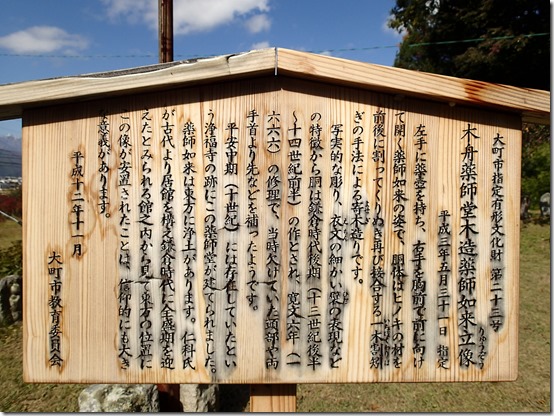 大町市指定有形文化財 第二十三号
木舟薬師堂木造薬師如来立像
りゅうぞう
平成三年五月三十一日 指定
左手に薬壺を持ち、右手を胸前で前に向け
て開く薬師如来の姿で、胴体はヒノキの材を
前後に割ってくりぬき再び接合する一木割矧
ぎの手法による寄木造りです。
写実的な彫り、衣文の細かい襞の表現など
の特徴から胴は鎌倉時代後期（十三世紀後半
～十四世紀前半）の作とされ、寛文六年（一
六六六）の修理で、当時欠けていた頭部や両
手首より先などを補ったようです。
平安中期（十世紀）には存在していたとい
う浄福寺の跡にこの薬師堂が建てられました。
薬師如来は東方に浄土があります。仁科氏
が古代より居館を構え鎌倉時代に全盛期を迎
えたとみられる館之内から見て東方の位置に
この像が安置されたことは、信仰的にも大き
な意義があります。
平成十二年十一月
大町市教育委員会